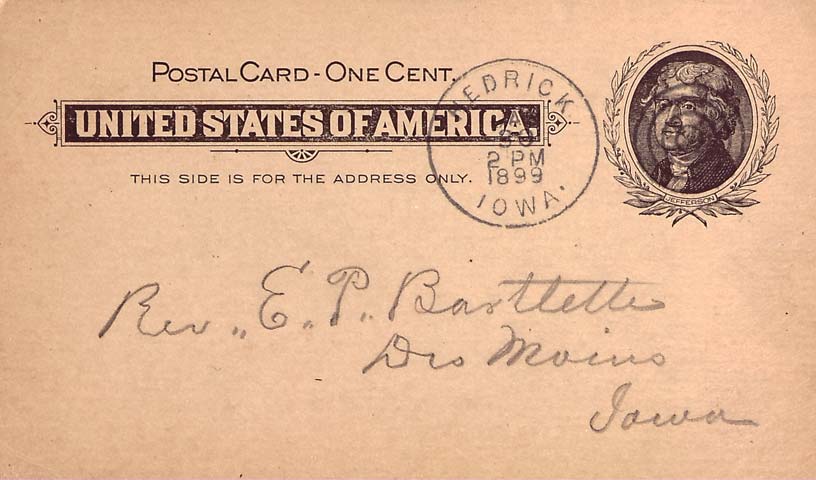 POSTAL CARD - ONE CENT.
UNITED STATES OF AMERICA.
THIS SIDE IS FOR THE ADDRESS ONLY.
HEDRICK
2 PM
1899
IOWA.
JEFFERSON
Rev. E. P. Bartlette
Des Moins
Iowa